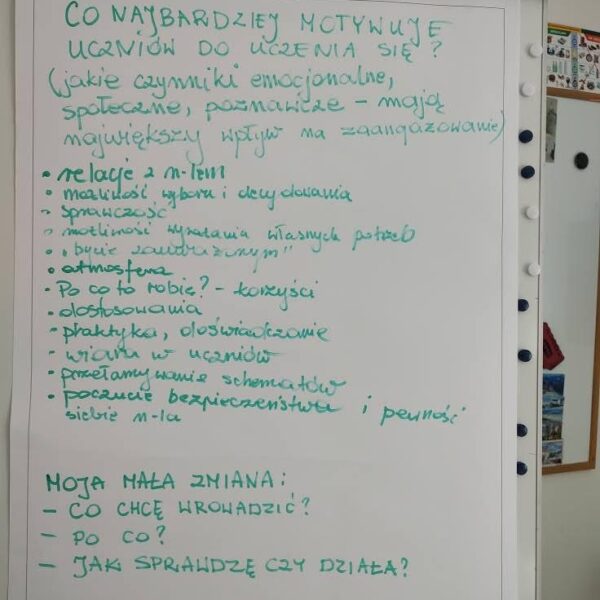 CO NAJBARDZIEJ MOTYWUJE
UCZNIÓW DO UCZENIA SIĘ?
(jakie czynniki emocjonalne,
społeczne, poznawcze – mają
największy wpływ na zaangażowanie)
• relacje z n-lem
• możliwość wyboru i decydowania
• sprawczość
• możliwość wyrażania własnych potrzeb
• „bycie zauważonym"
• atmosfera
• Po co to robię? – korzyści
• dostosowania
• praktyka, doświadczanie
• wiara w uczniów
• przełamywanie schematów
• poczucie bezpieczeństwa i pewność
siebie n-la
MOJA MAŁA ZMIANA:
– CO CHCĘ WROWADZIĆ?
– PO CO?
– JAK SPRAWDZĘ CZY DZIAŁA?